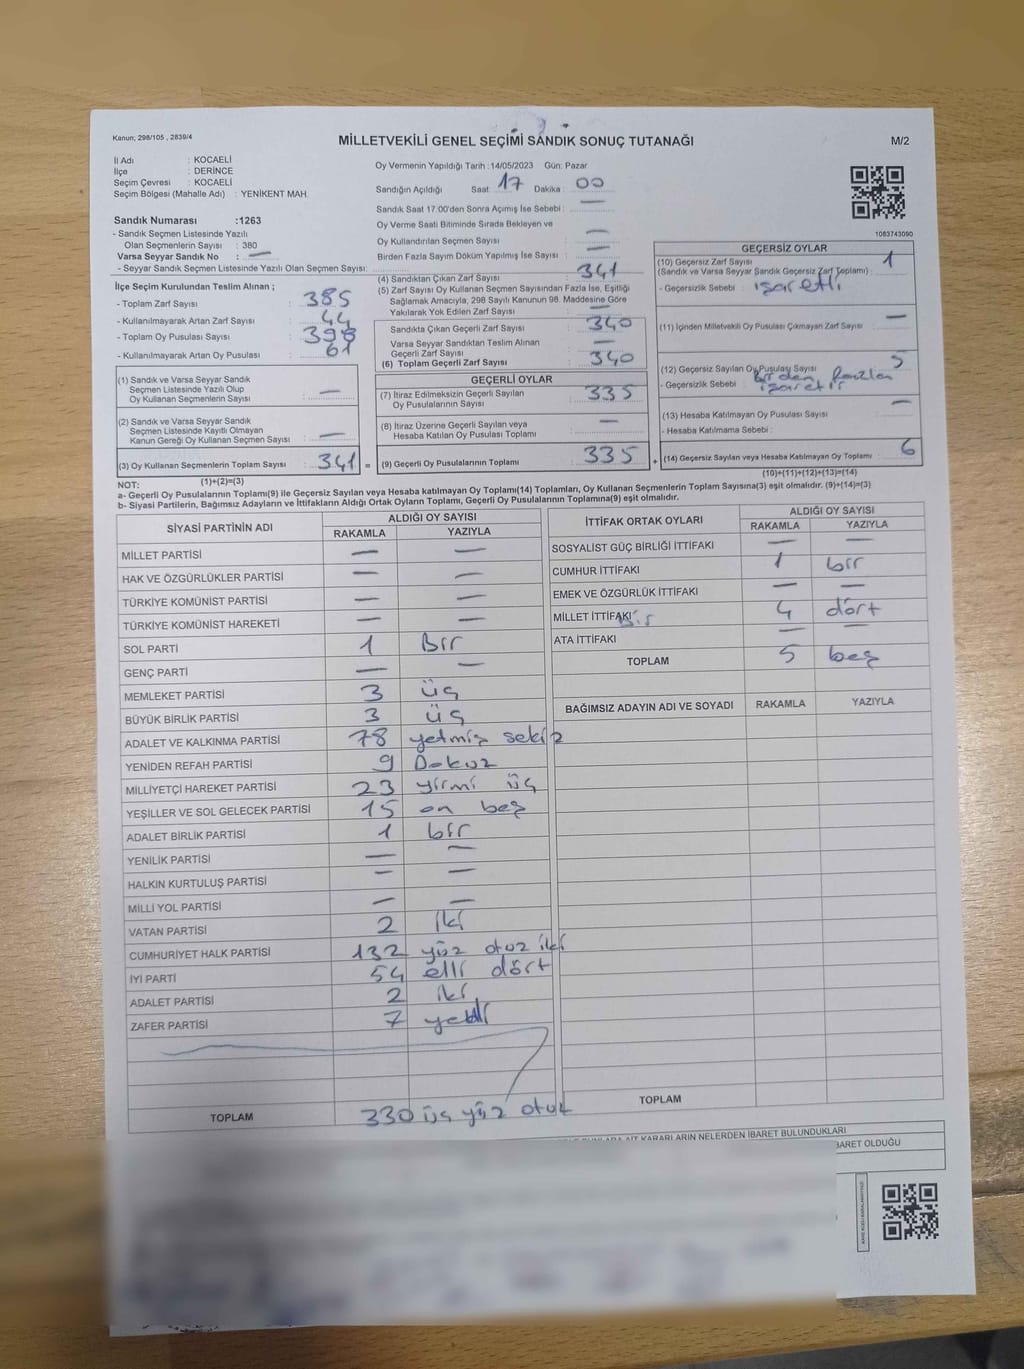 Kanun, 298/105 , 2839/4
MİLLETVEKİLİ GENEL SEÇİMİ SANDIK SONUÇ TUTANAĞI
M/2
İl Adı : KOCAELİ
İlçe : DERİNCE
Seçim Çevresi : KOCAELİ
Seçim Bölgesi (Mahalle Adı) : YENİKENT MAH.
Sandık Numarası :1263
- Sandık Seçmen Listesinde Yazılı
Olan Seçmenlerin Sayısı : 380
Varsa Seyyar Sandık No : —
- Seyyar Sandık Seçmen Listesinde Yazılı Olan Seçmen Sayısı:
Oy Vermenin Yapıldığı Tarih :14/05/2023 Gün: Pazar
Sandığın Açıldığı Saat 17 Dakika : 00
Sandık Saat 17:00'den Sonra Açımış İse Sebebi : —
Oy Verme Saati Bitiminde Sırada Bekleyen ve
Oy Kullandırılan Seçmen Sayısı : —
Birden Fazla Sayım Döküm Yapılmış İse Sayısı : —
1083743090
İlçe Seçim Kurulundan Teslim Alınan ;
- Toplam Zarf Sayısı : 385
- Kullanılmayarak Artan Zarf Sayısı : 44
- Toplam Oy Pusulası Sayısı : 398
- Kullanılmayarak Artan Oy Pusulası : 61
(1) Sandık ve Varsa Seyyar Sandık
Seçmen Listesinde Yazılı Olup
Oy Kullanan Seçmenlerin Sayısı : —
(2) Sandık ve Varsa Seyyar Sandık
Seçmen Listesinde Kayıtlı Olmayan
Kanun Gereği Oy Kullanan Seçmen Sayısı : —
(3) Oy Kullanan Seçmenlerin Toplam Sayısı : 341 =
(4) Sandıktan Çıkan Zarf Sayısı : 341
(5) Zarf Sayısı Oy Kullanan Seçmen Sayısından Fazla İse, Eşitliği
Sağlamak Amacıyla, 298 Sayılı Kanunun 98. Maddesine Göre
Yakılarak Yok Edilen Zarf Sayısı : —
Sandıkta Çıkan Geçerli Zarf Sayısı : 340
Varsa Seyyar Sandıktan Teslim Alınan
Geçerli Zarf Sayısı : —
(6) Toplam Geçerli Zarf Sayısı : 340
GEÇERLİ OYLAR
(7) İtiraz Edilmeksizin Geçerli Sayılan
Oy Pusulalarının Sayısı : 335
(8) İtiraz Üzerine Geçerli Sayılan veya
Hesaba Katılan Oy Pusulası Toplamı : —
(9) Geçerli Oy Pusulalarının Toplamı : 335 +
GEÇERSİZ OYLAR
(10) Geçersiz Zarf Sayısı
(Sandık ve Varsa Seyyar Sandık Geçersiz Zarf Toplamı) : 1
- Geçersizlik Sebebi : işaretli
(11) İçinden Milletvekili Oy Pusulası Çıkmayan Zarf Sayısı : —
(12) Geçersiz Sayılan Oy Pusulası Sayısı : 5
- Geçersizlik Sebebi : birden fazla
işaretir
(13) Hesaba Katılmayan Oy Pusulası Sayısı : —
- Hesaba Katılmama Sebebi :
(14) Geçersiz Sayılan veya Hesaba Katılmayan Oy Toplamı : 6
(10)+(11)+(12)+(13)=(14)
NOT: (1)+(2)=(3)
a- Geçerli Oy Pusulalarının Toplamı(9) ile Geçersiz Sayılan veya Hesaba katılmayan Oy Toplamı(14) Toplamları, Oy Kullanan Seçmenlerin Toplam Sayısına(3) eşit olmalıdır. (9)+(14)=(3)
b- Siyasi Partilerin, Bağımsız Adayların ve İttifakların Aldığı Ortak Oyların Toplamı, Geçerli Oy Pusulalarının Toplamına(9) eşit olmalıdır.
SİYASİ PARTİNİN ADI ALDIĞI OY SAYISI
RAKAMLA YAZIYLA
MİLLET PARTİSİ — —
HAK VE ÖZGÜRLÜKLER PARTİSİ — —
TÜRKİYE KOMÜNİST PARTİSİ — —
TÜRKİYE KOMÜNİST HAREKETİ — —
SOL PARTİ 1 Bir
GENÇ PARTİ — —
MEMLEKET PARTİSİ 3 üç
BÜYÜK BİRLİK PARTİSİ 3 üç
ADALET VE KALKINMA PARTİSİ 78 yetmiş sekiz
YENİDEN REFAH PARTİSİ 9 Dokuz
MİLLİYETÇİ HAREKET PARTİSİ 23 yirmi üç
YEŞİLLER VE SOL GELECEK PARTİSİ 15 on beş
ADALET BİRLİK PARTİSİ 1 bir
YENİLİK PARTİSİ — —
HALKIN KURTULUŞ PARTİSİ — —
MİLLİ YOL PARTİSİ — —
VATAN PARTİSİ 2 iki
CUMHURİYET HALK PARTİSİ 132 yüz otuz iki
İYİ PARTİ 54 elli dört
ADALET PARTİSİ 2 iki
ZAFER PARTİSİ 7 yedi
TOPLAM 330 üç yüz otuz
İTTİFAK ORTAK OYLARI ALDIĞI OY SAYISI
RAKAMLA YAZIYLA
SOSYALİST GÜÇ BİRLİĞİ İTTİFAKI — —
CUMHUR İTTİFAKI 1 bir
EMEK VE ÖZGÜRLÜK İTTİFAKI — —
MİLLET İTTİFAKI 4 dört
ATA İTTİFAKI — —
TOPLAM 5 beş
BAĞIMSIZ ADAYIN ADI VE SOYADI RAKAMLA YAZIYLA
TOPLAM
KARARLARIN NELERDEN İBARET BULUNDUKLARI
İBARET OLDUĞU